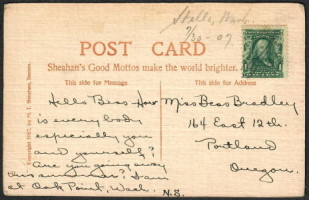 Stella, Wash.
7/30-07
POST CARD
Sheahan's Good Mottos make the world brighter.
This side for Message
This side for Address
Hello Bess How
is every body
especially you
and yourself?
Are you going away
this summer? I am
at Oak Point, Wash.
N.S.
Miss Bess Bradley
164 East 12th.
Portland
Oregon.